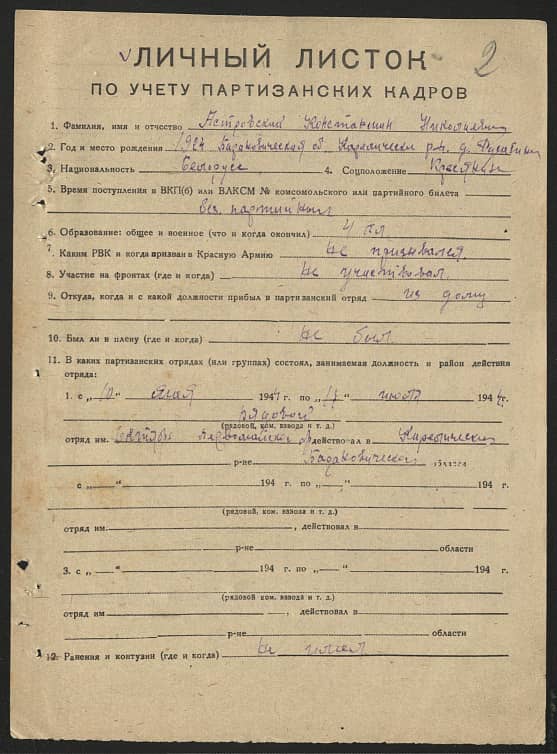 2
ЛИЧНЫЙ ЛИСТОК
ПО УЧЕТУ ПАРТИЗАНСКИХ КАДРОВ
1. Фамилия, имя и отчество Константин
2. Год и место рождения 1924 Барановическая об. р-н. д.
3. Национальность Белорусс 4. Соцположение Крестянин
5. Время поступления в ВКП(б) или ВЛКСМ № комсомольского или партийного билета
без партийный
6. Образование: общее и военное (что и когда окончил) 4 кл
7. Каким РВК и когда призван в Красную Армию Не призывался
8. Участие на фронтах (где и когда) Не участвовал
9. Откуда, когда и с какой должности прибыл в партизанский отряд из дому
10. Был ли в плену (где и когда) Не был
11. В каких партизанских отрядах (или группах) состоял, занимаемая должность и район действия
отряда:
1. с „10" мая 194 г. по „ " 194 г.
рядовой
(рядовой, ком. взвода и т. д.)
отряд им. действовал в
р-не Барановической области
с „ " 194 г. по „ " 194 г.
(рядовой, ком. взвода и т. д.)
отряд им. , действовал в
р-не области
3. с „ " 194 г. по „ " 194 г.
(рядовой, ком. взвода и т. д.)
отряд им , действовал в
р-не области
12. Ранения и контузии (где и когда) Не имел